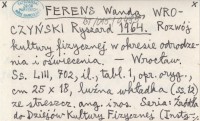 FERENS Wanda, WRO-
CZYŃSKI Ryszard 1964. Rozwój
kultury fizycznej w okresie odrodze-
nia i oświecenia. — Wrocław.
Ss. LIII, 702, il., tabl. 1, opr. oryg.,
cm 25 x 18, luźna wkładka (ss. 12)
ze streszcz. ang. i ros. Seria:
do Dziejów Kultury Fizycznej (Insty-